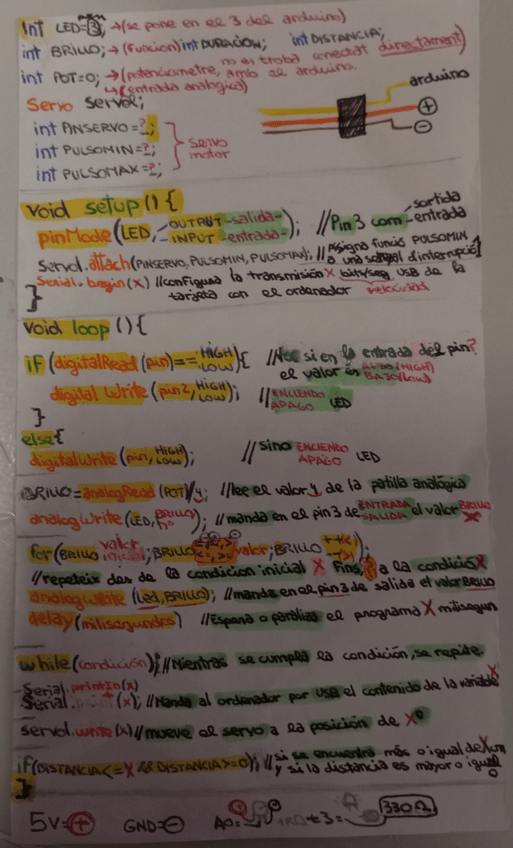 int LED=3; →(se pone en el 3 del arduino)
int BRILLO; →(funcion) int DURACION; int DISTANCIA;
no es troba conectat directament)
int POT=0; →(potenciometre, amb el arduino.
↳(entrada analogica)
Servo Servo1;
arduino
int PINSERVO=?;
int PULSOMIN=?;
int PULSOMAX=?;
servo
motor
+
-
void setup() {
pinMode(LED, OUTPUT -salida- INPUT -entrada-); //Pin 3 com sortida entrada
Servo1.attach(PINSERVO, PULSOMIN, PULSOMAX); //Asigna funció PULSOMIN
a una señal d'interrupció
Serial.begin(x) //configura la transmisión X bits/seg USB de la
tarjeta con el ordenador velocidad
}
void loop () {
if (digitalRead (pin)== HIGH LOW) { // si en la entrada del pin?
el valor es (HIGH)
BAJO (LOW)
digital Write (pin2, HIGH LOW); // ENCIENDO APAGO LED
}
else {
digitalWrite (pin, HIGH LOW); // sino ENCIENDO APAGO LED
BRILLO = analogRead (POT)/y; //lee el valor y de la patilla analógica
analogWrite (LED, Brillo); // manda en el pin 3 de ENTRADA SALIDA el valor BRILLO
for (BRILLO valor inicial; BRILLO valor; BRILLO ++ --);
//repeteix des de la condicion inicial X fins a la condició X
analogWrite (Led, BRILLO); //manda en el pin 3 de salida el valor BRILLO
delay (milisegundos) //Espera o paraliza el programa X milisegun
while (condición); //Mientras se cumpla la condición, se repite.
Serial.println(x)
Serial.print(x); //Manda al ordenador por USB el contenido de la variable X
servo1.write (x) //mueve el servo a la posición de Xº
if (DISTANCIA <= X && DISTANCIA >= 0); // si se encuentra más o igual de X cm
y si la distancia es mayor o igual
}
5V=+ GND=- A0= 3= 330Ω